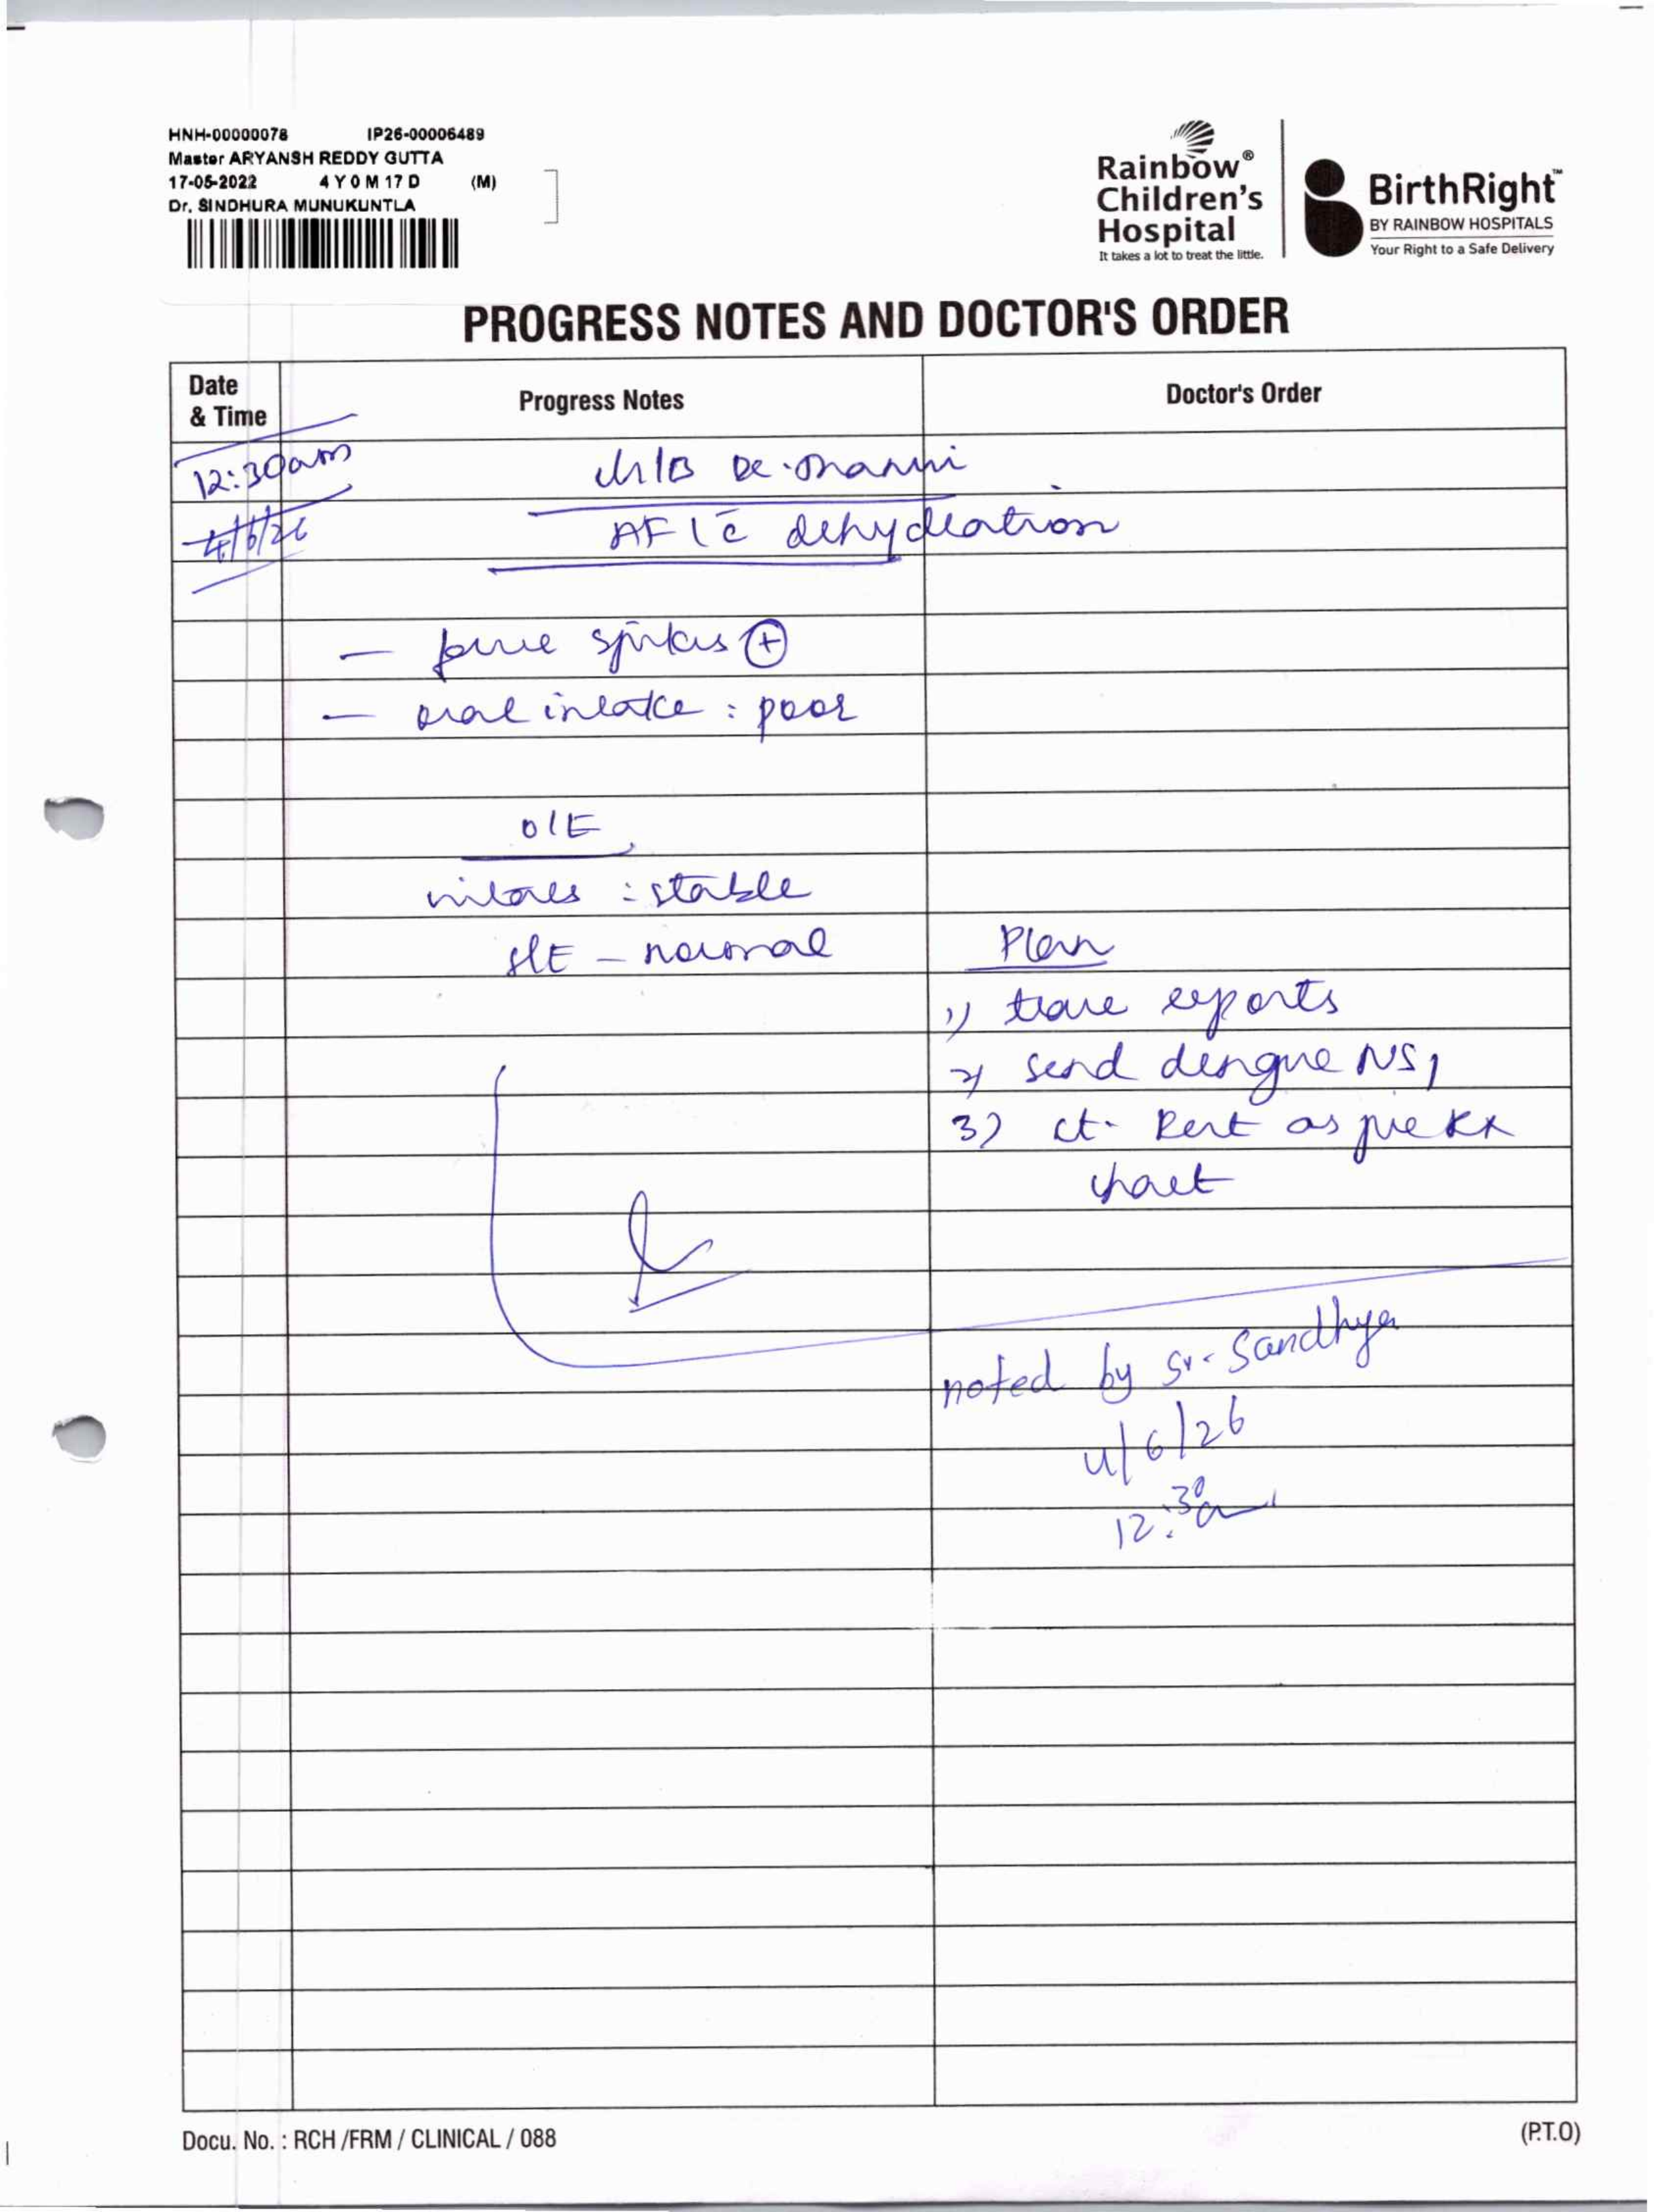 HNH-00000078 IP26-00006489
Master ARYANSH REDDY GUTTA
17-05-2022 4 Y 0 M 17 D (M)
Dr. SINDHURA MUNUKUNTLA
Rainbow®
Children's
Hospital
It takes a lot to treat the little.
BirthRight™
BY RAINBOW HOSPITALS
Your Right to a Safe Delivery
PROGRESS NOTES AND DOCTOR'S ORDER
Date
& Time
Progress Notes
Doctor's Order
12:30am
4/6/26
AFI c̄ dehydration
- spikes ⊕
- oral intake : poor
O/E
vitals : stable
S/E - normal
Plan
1) trace reports
2) send dengue NS1
3) ct. Rest as per Rx
chart
noted by Sr. Sandhya
4/6/26
12:30am
Docu. No. : RCH /FRM / CLINICAL / 088
(P.T.O)